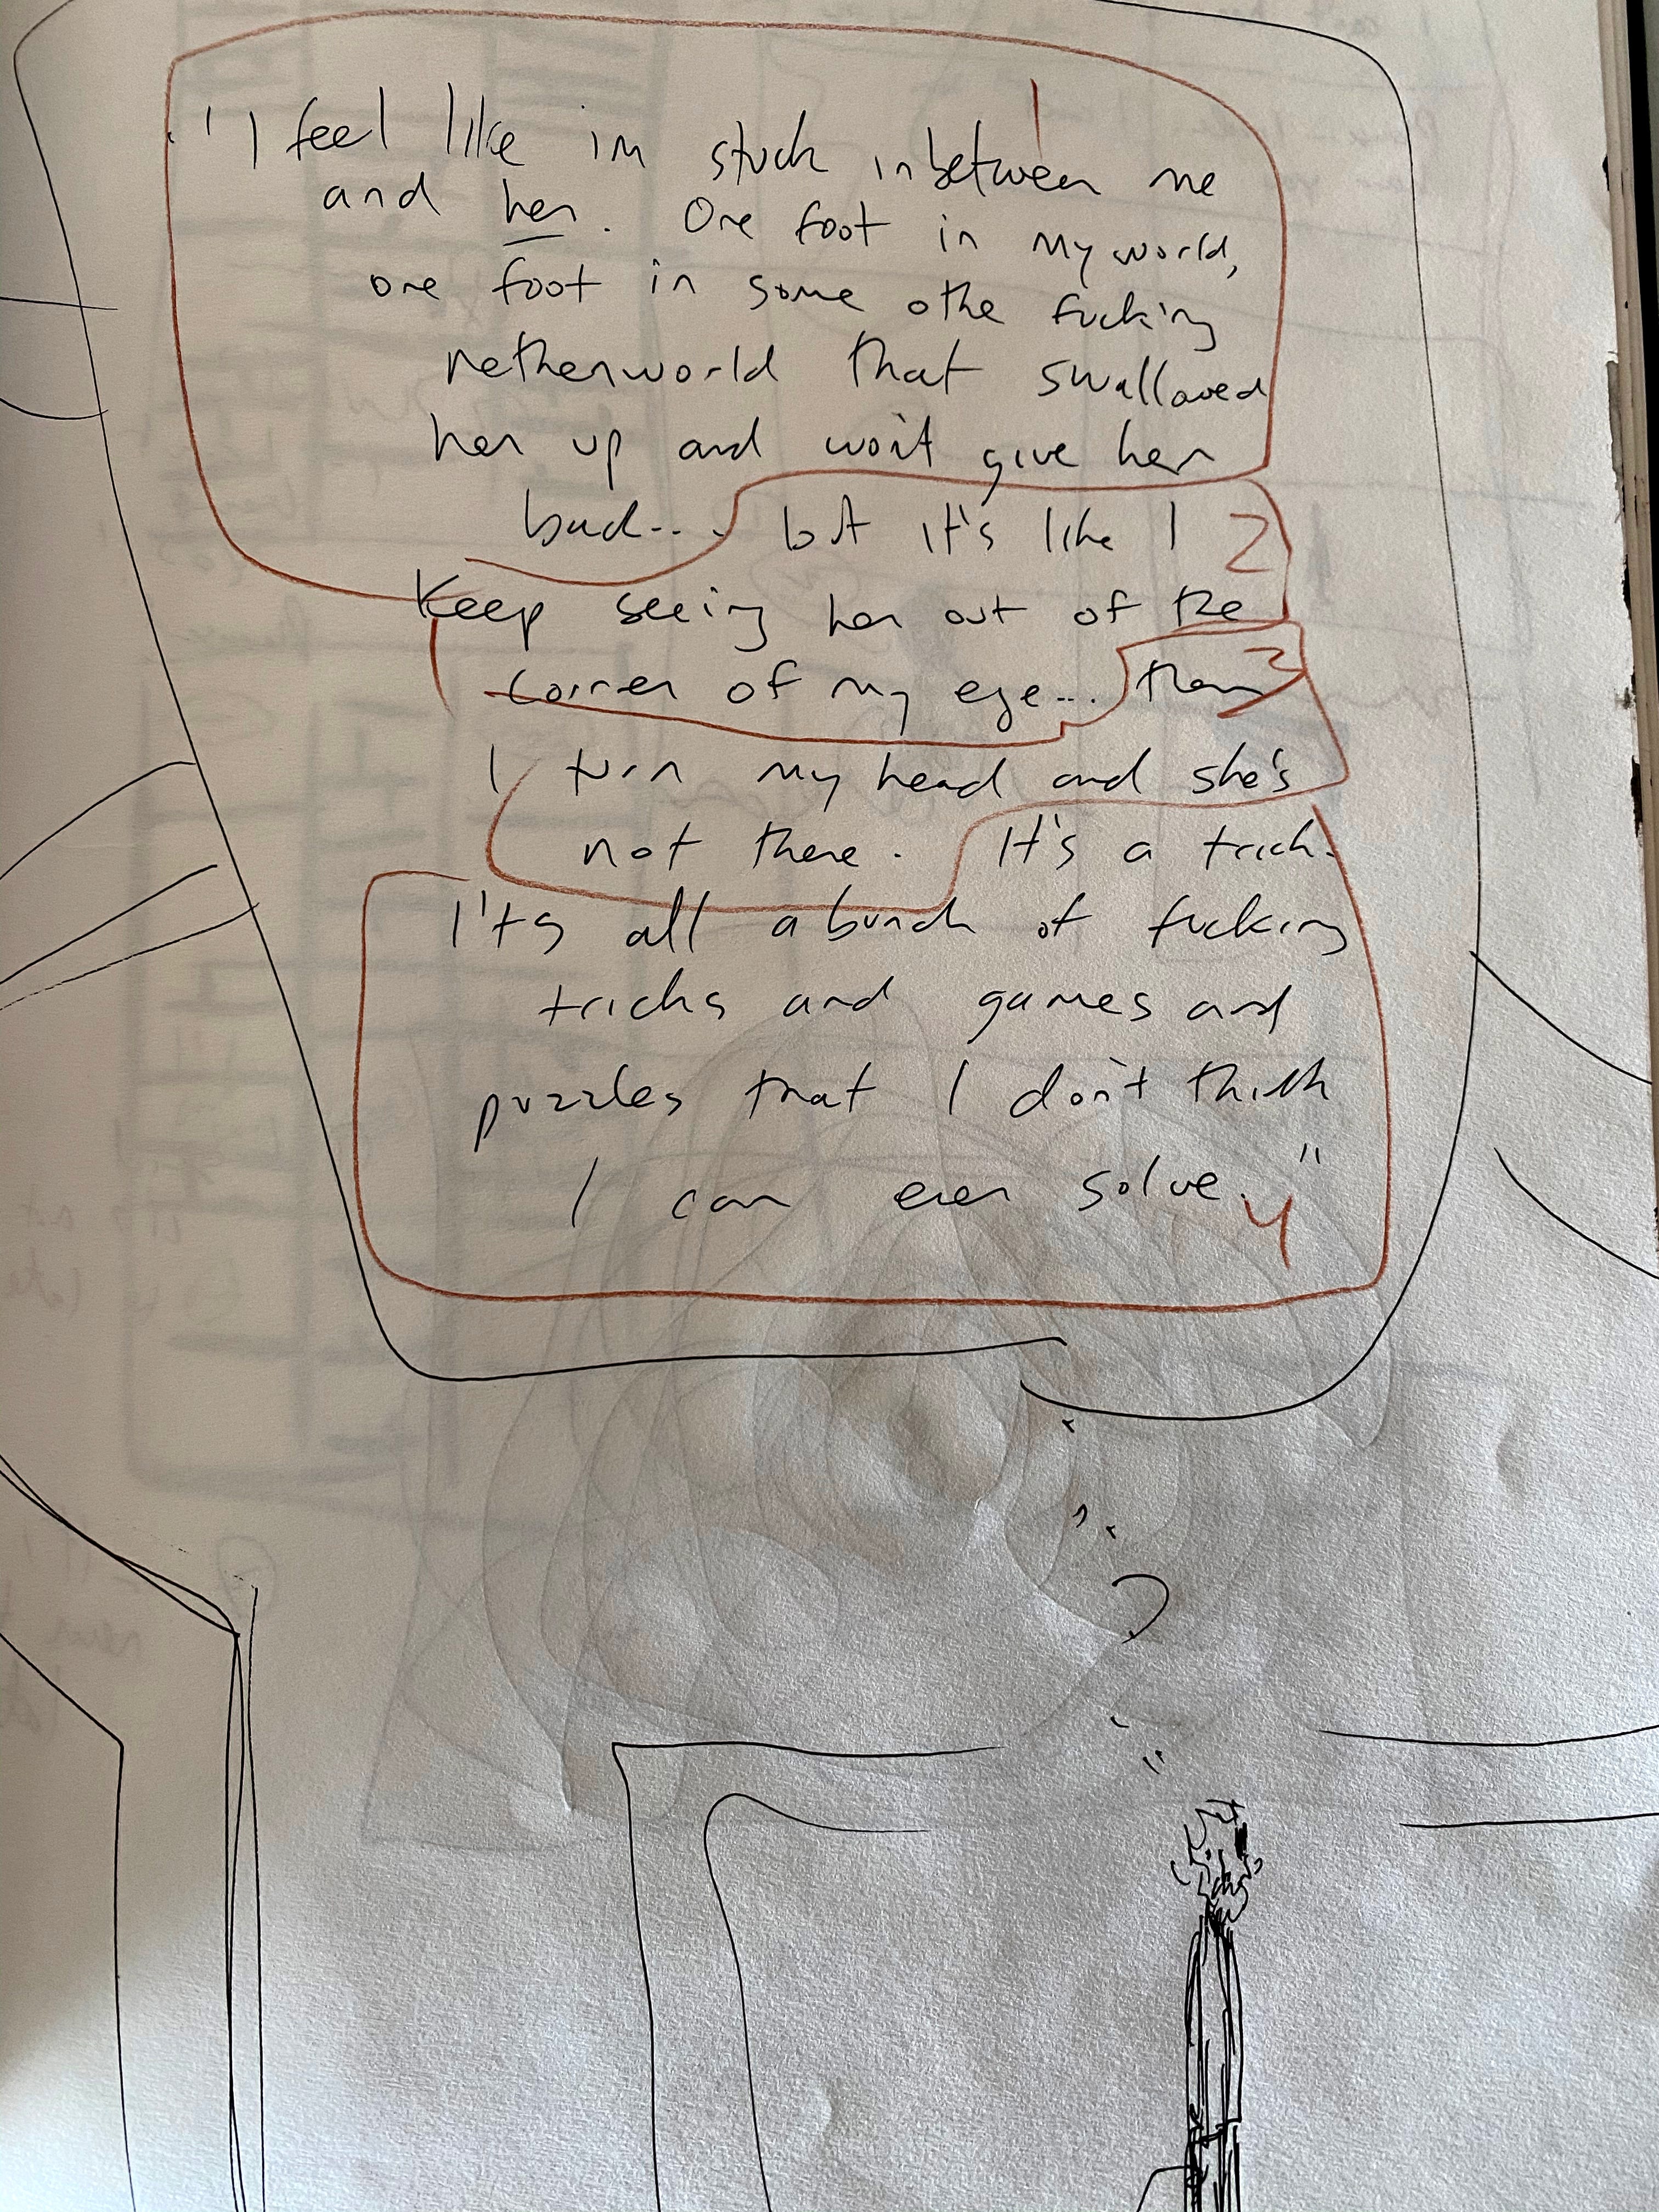 "I feel like im stuck inbetween me
1
and her. One foot in my world,
one foot in some othe fucking
netherworld that swallowed
her up and won't give her
back... but it's like I
2
Keep seeing her out of the
corner of my eye... then
3
I turn my head and she's
not there. It's a trick.
I'ts all a bunch of fucking
tricks and games and
puzzles that I don't think
I can ever solve."
4